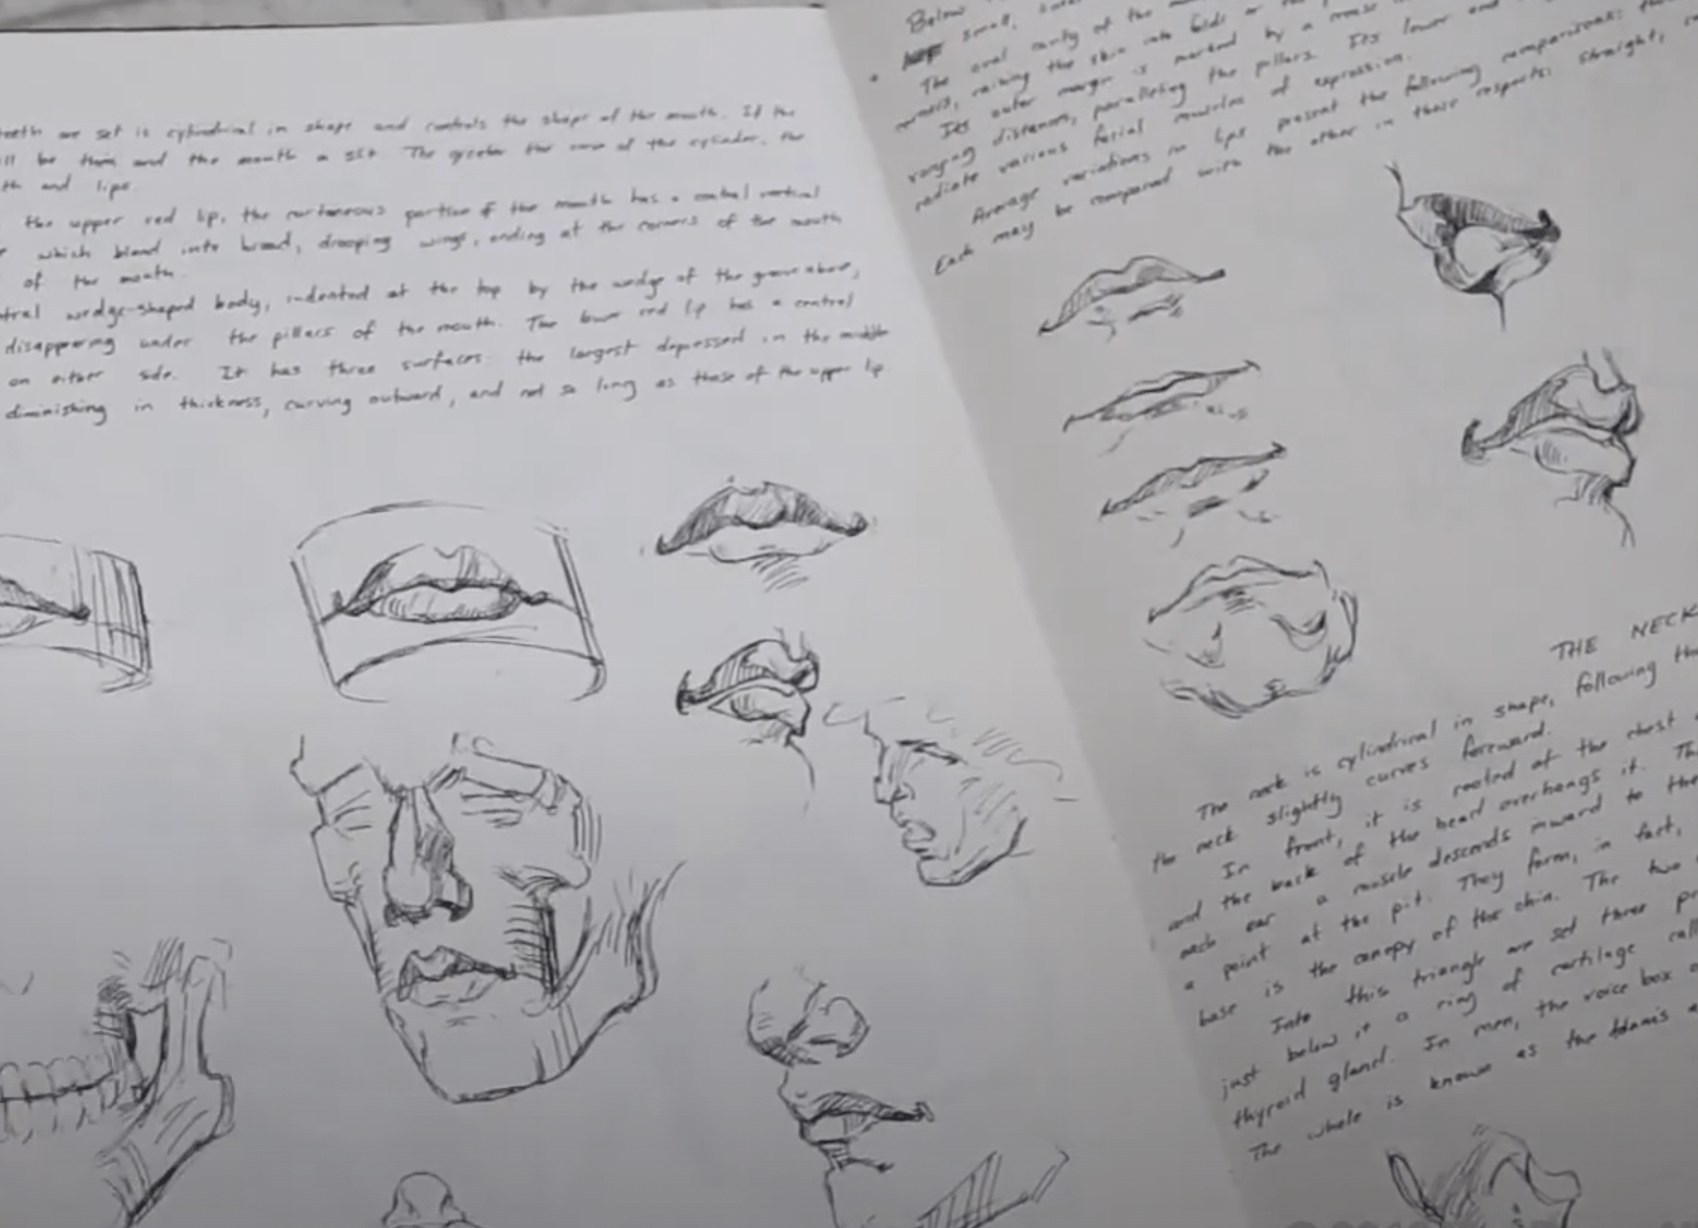 teeth are set is cylindrical in shape and controls the shape of the mouth. If the
ill be thin and the mouth a slit. The greater the curve of the cylinder, the
th and lips.
the upper red lip, the cutaneous portion of the mouth has a central vertical
which blend into broad, drooping wings, ending at the corners of the mouth
of the mouth.
tral wedge-shaped body, indented at the top by the wedge of the groove above,
disappearing under the pillars of the mouth. The lower red lip has a central
on either side. It has three surfaces: the largest depressed in the middle
diminishing in thickness, curving outward, and not so long as those of the upper lip
Below
small,
The oval cavity of the
raising the skin into folds or
Its outer margin is marked by a crease
ranging distances, paralleling the pillars. Its lower end
radiate various facial muscles of expression.
Average variations in lips present the following comparisons:
Each may be compared with the other in these respects: straight,
THE NECK
The neck is cylindrical in shape, following the
the neck slightly curves foreward.
In front, it is rooted at the chest
and the back of the head overhangs it. Th
each ear a muscle descends inward to the
a point at the pit. They form, in fact,
base is the canopy of the chin. The two
Into this triangle are set three
just below it a ring of cartilage call
thyroid gland. In men, the voice box
The whole is known as the Adam's a